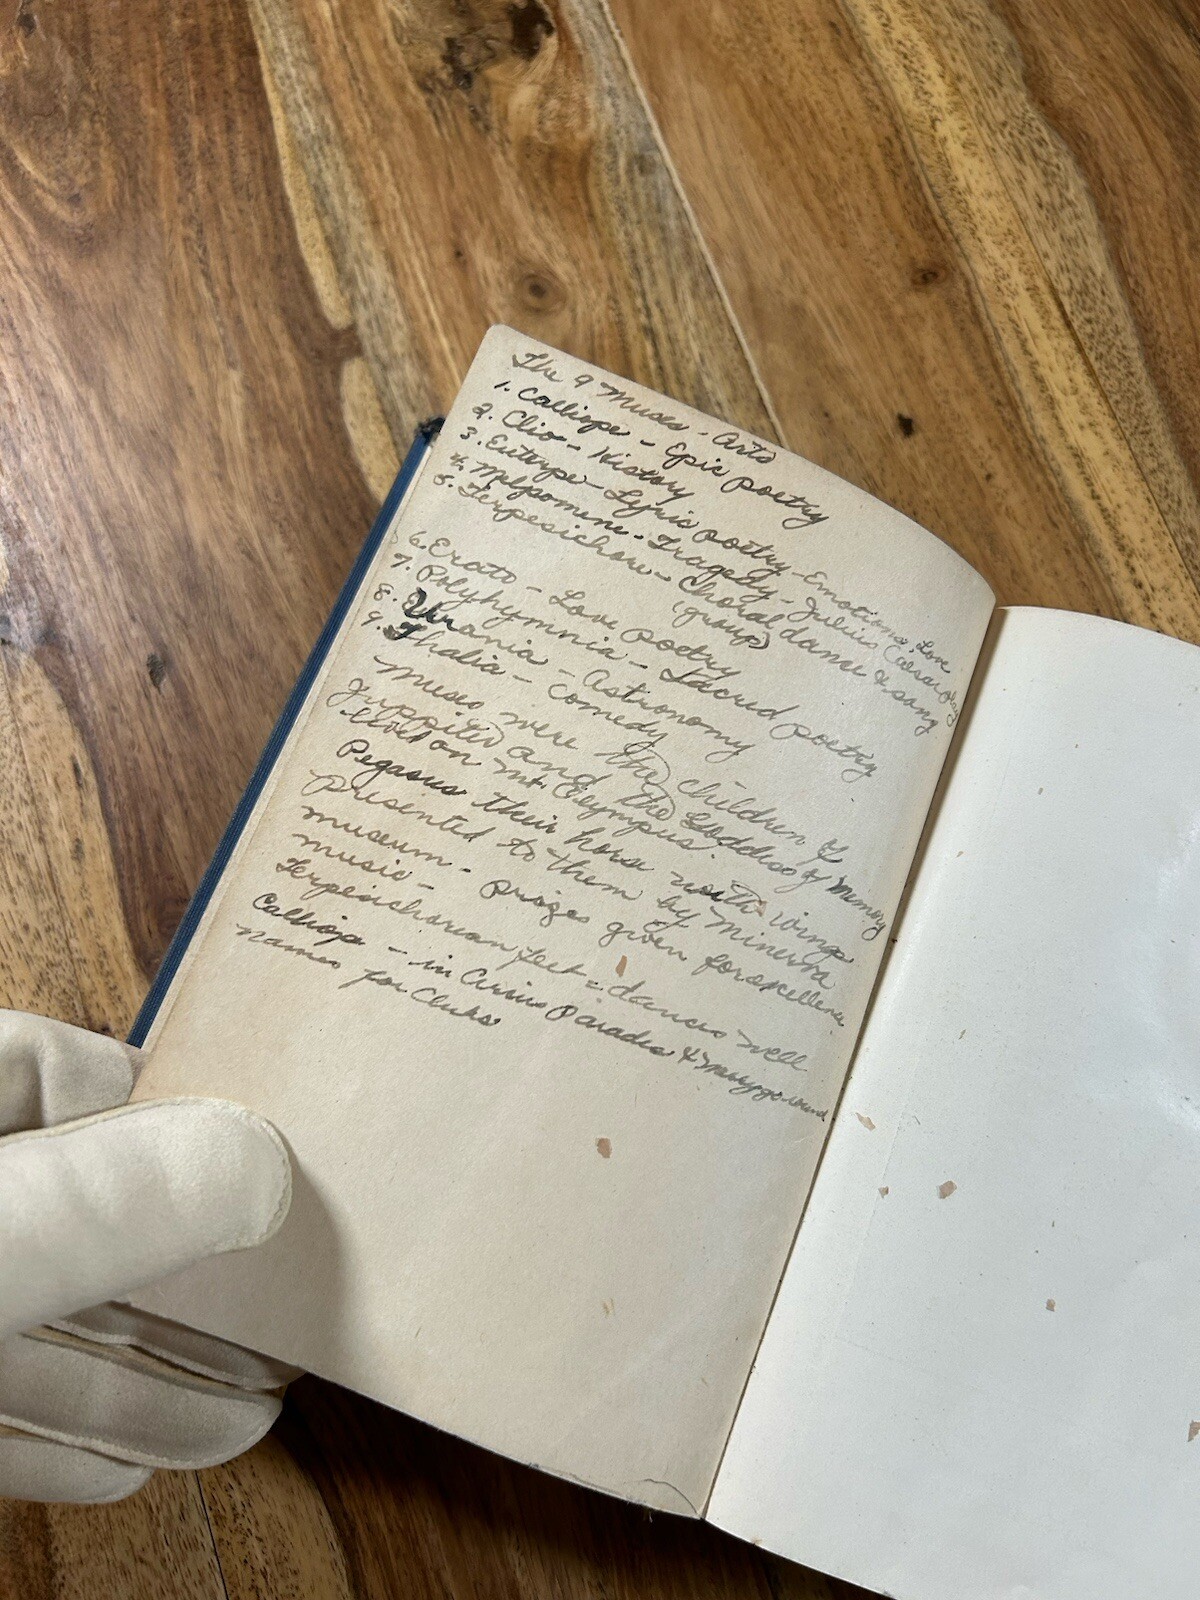 The 9 Muses - Arts
1. Calliope - Epic poetry
2. Clio - History
3. Euterpe - Lyric poetry - Emotions, Love
4. Melpomene - Tragedy - Julius Caesar play
5. Terpesichore - Choral dance & song
(group)
6. Erato - Love poetry
7. Polyhymnia - Sacred poetry
8. Urania - Astronomy
9. Thalia - Comedy
Muses were the children of
Juppiter and the Goddess of Memory
lived on Mt. Olympus.
Pegasus their horse with wings
presented to them by Minerva
museum -
music - prizes given for excellence
Terpesichorean feet = dances well
Calliope - in Circus Parades & Merry go-round
names for Clubs